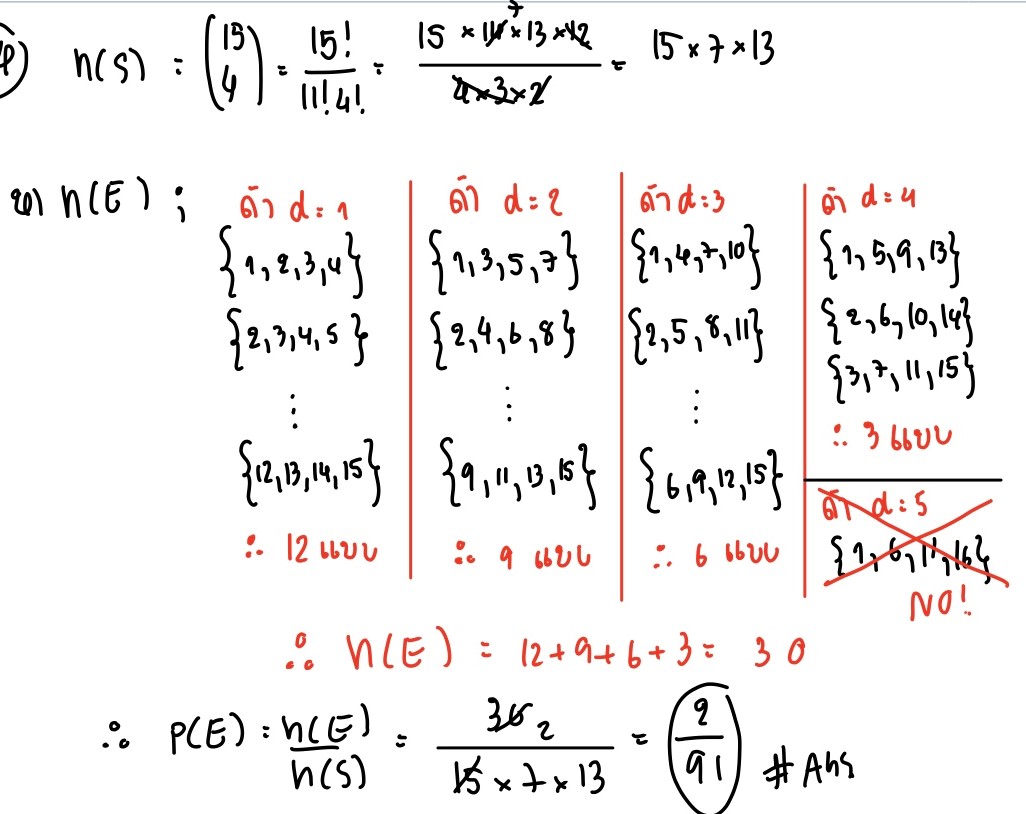 n(S) = (15 4) = 15! / 11! 4! = 15 × 14 7 × 13 × 12 / 4 × 3 × 2 = 15 × 7 × 13
หา n(E) ;
ถ้า d = 1
{1, 2, 3, 4}
{2, 3, 4, 5}
⋮
{12, 13, 14, 15}
∴ 12 แบบ
ถ้า d = 2
{1, 3, 5, 7}
{2, 4, 6, 8}
⋮
{9, 11, 13, 15}
∴ 9 แบบ
ถ้า d = 3
{1, 4, 7, 10}
{2, 5, 8, 11}
⋮
{6, 9, 12, 15}
∴ 6 แบบ
ถ้า d = 4
{1, 5, 9, 13}
{2, 6, 10, 14}
{3, 7, 11, 15}
∴ 3 แบบ
ถ้า d = 5
{1, 6, 11, 16}
NO!
∴ n(E) = 12 + 9 + 6 + 3 = 30
∴ P(E) = n(E) / n(S) = 30 2 / 15 × 7 × 13 = 2 / 91 # Ans